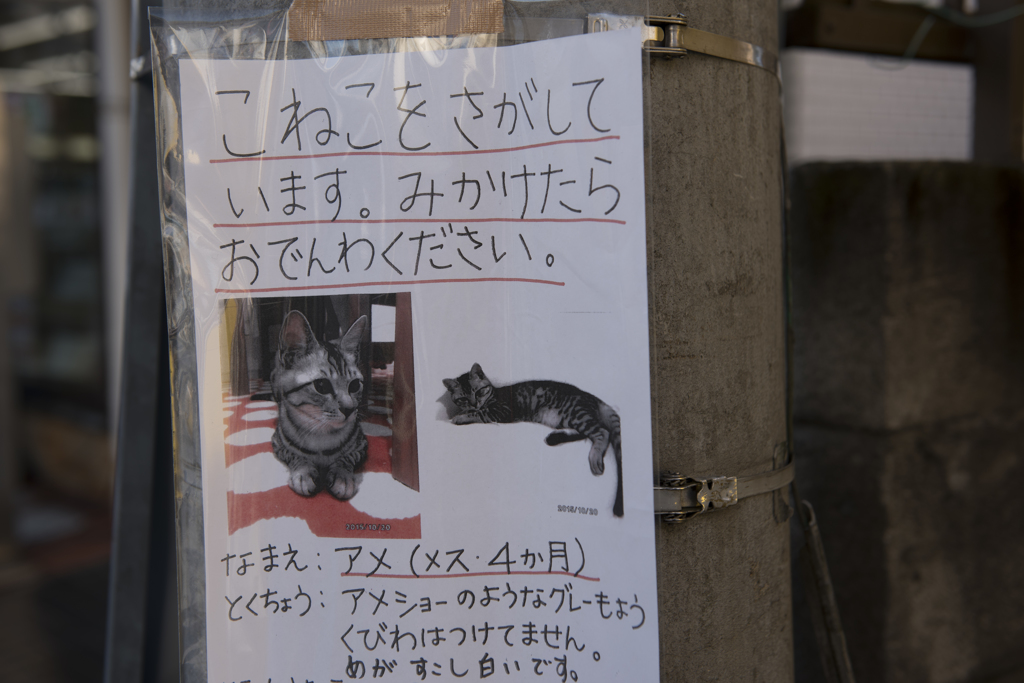 こねこをさがして
います。みかけたら
おでんわください。
2015/10/20
2015/10/20
なまえ：アメ（メス・4か月）
とくちょう：アメショーのようなグレーもよう
くびわはつけてません。
めがすこし白いです。